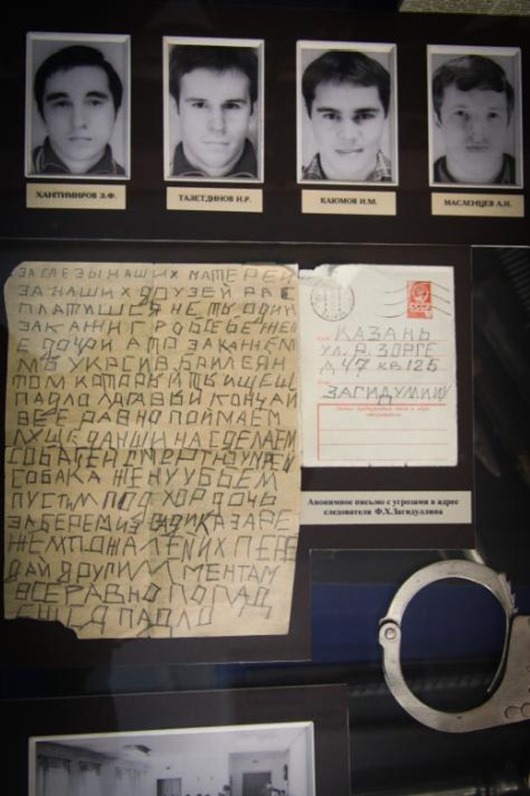 ХАНТИМИРОВ З.Ф.
ТАЗЕТДИНОВ И.Р.
КАЮМОВ И.М.
МАСЛЕНЦЕВ А.И.
ЗА СЛЕЗЫ НАШИХ МАТЕРЕЙ
ЗА НАШИХ ДРУЗЕЙ РАС
ПЛАТИШСЯ НЕ ТЬ ОДИН
ЗАКАЖИ ГРОБ СЕБЕ ЖЕН
Е ДОЧРИ А ТО ЗАКАЖЕМ
МЬ УКРСИВ БРИЛЕЯН
ТОМ КОТОРЫЙ ТЬ ИЩЕШ
ПАДЛО КОНЧАЙ
ВСЕ РАВНО ПОЙМАЕМ
НА СДЕЛАЕМ
СОБАЧЕЙ СМЕРТЮ УМРЕЙ
СОБАКА ЖЕНУ УБЬЕМ
ПУСТИМ ПОД ХОР ДОЧЬ
ЗАБЕРЕМ ЗАРЕ
ЖЕМ ПОЖАЛЕЙ ИХ ПЕРЕ
ДАЙ ДРУГИМ МЕНТАМ
ВСЕ РАВНО ПОПАД
ЕШЬСЯ ПАДЛО
КАЗАНЬ
УЛ. Р. ЗОРГЕ
Д 47 КВ 125
ЗАГИДУЛИНУ
Анонимное письмо с угрозами в адрес
следователя Ф.Х.Загидуллина